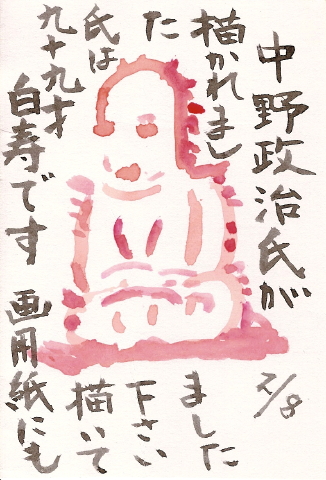 中野政治氏が
描かれまし
た
氏は
九十九才
白寿です
画用紙にも
描いて
下さい
ました
2/8